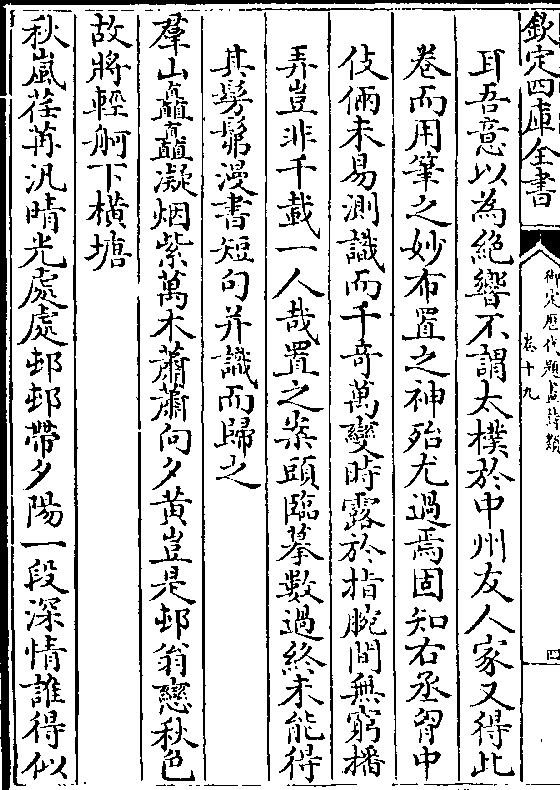 欽定四庫全書
御定歴代題畫詩類
卷十九
四
耳吾意以為絶響不謂太樸於中州友人家又得此
卷而用筆之妙布置之神殆尤過焉固知右丞胷中
伎倆未易測識而千竒萬變時露於指腕間無窮播
弄豈非千載一人哉置之案頭臨摹數過終未能得
其髣髴漫書短句并識而歸之
羣山矗矗凝烟紫萬木蕭蕭向夕黄豈是邨翁戀秋色
故將輕舸下横塘
秋嵐荏苒汎晴光處處邨邨帶夕陽一段深情誰得似